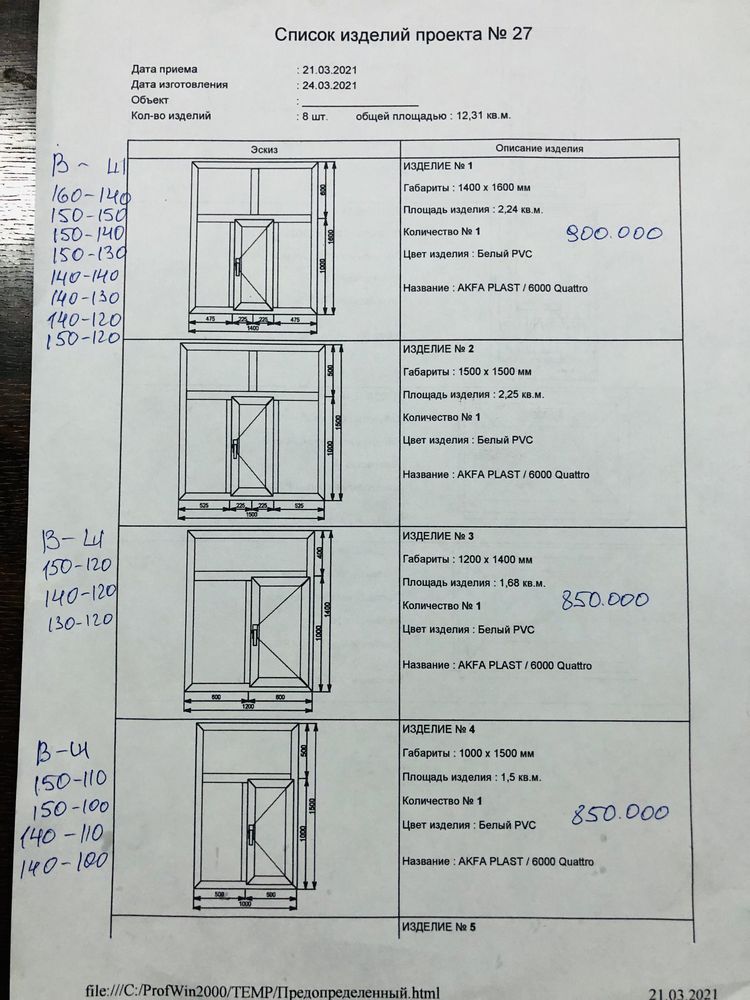 Список изделий проекта № 27
Дата приема : 21.03.2021
Дата изготовления : 24.03.2021
Объект : ____________________
Кол-во изделий : 8 шт. общей площадью : 12,31 кв.м.
Эскиз Описание изделия
В - Ш
160-140
150-150
150-140
150-130
140-140
140-130
140-120
150-120
600
1000
1600
475 225 225 475
1400
ИЗДЕЛИЕ № 1
Габариты : 1400 x 1600 мм
Площадь изделия : 2,24 кв.м.
Количество № 1
900.000
Цвет изделия : Белый PVC
Название : AKFA PLAST / 6000 Quattro
500
1000
1500
525 225 225 525
1500
ИЗДЕЛИЕ № 2
Габариты : 1500 x 1500 мм
Площадь изделия : 2,25 кв.м.
Количество № 1
Цвет изделия : Белый PVC
Название : AKFA PLAST / 6000 Quattro
В - Ш
150-120
140-120
130-120
400
1000
1400
600 600
1200
ИЗДЕЛИЕ № 3
Габариты : 1200 x 1400 мм
Площадь изделия : 1,68 кв.м.
Количество № 1
850.000
Цвет изделия : Белый PVC
Название : AKFA PLAST / 6000 Quattro
В - Ш
150-110
150-100
140-110
140-100
500
1000
1500
500 500
1000
ИЗДЕЛИЕ № 4
Габариты : 1000 x 1500 мм
Площадь изделия : 1,5 кв.м.
Количество № 1
850.000
Цвет изделия : Белый PVC
Название : AKFA PLAST / 6000 Quattro
ИЗДЕЛИЕ № 5
file:///C:/ProfWin2000/TEMP/Предопределенный.html 21.03.2021